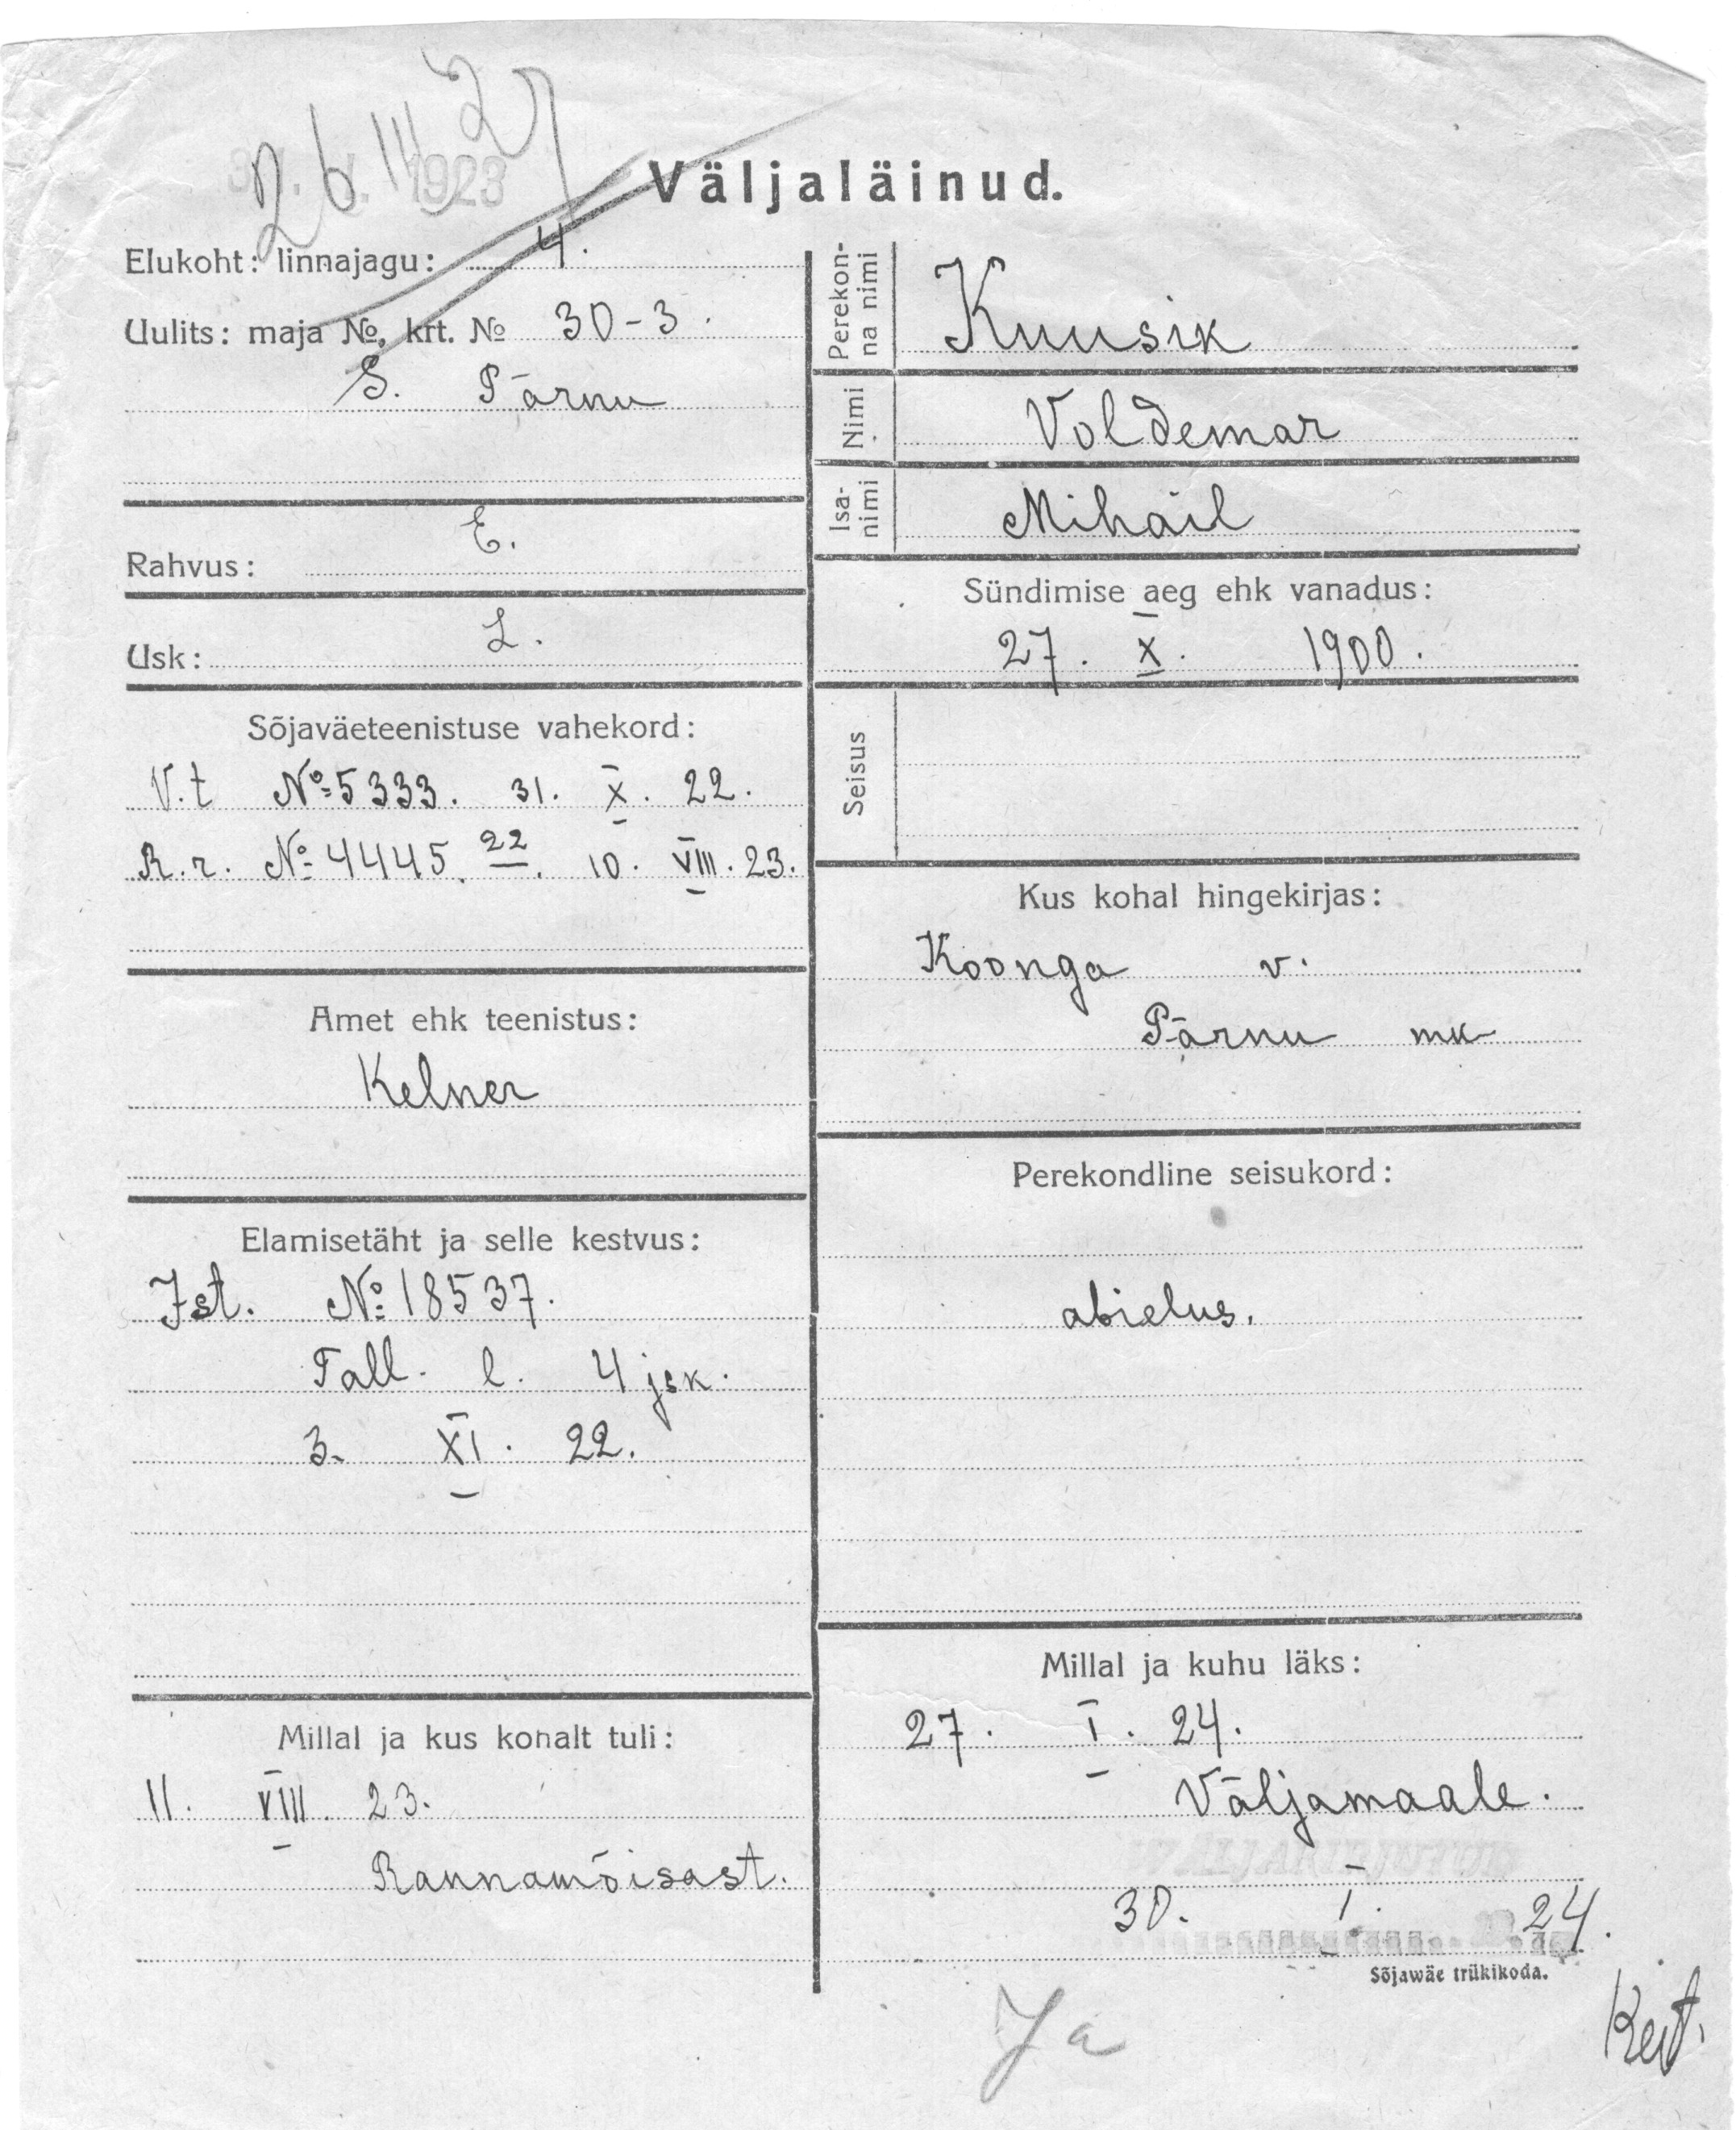 26 III 27
1923
Väljaläinud.
Elukoht: linnajagu: 4.
Uulits: maja №, krt. № 30-3.
S. Pärnu
Rahvus: E.
Usk: L.
Sõjaväeteenistuse vahekord:
V.t № 5333. 31. X. 22.
R.r. № 4445. 22. 10. VIII. 23.
Amet ehk teenistus:
Kelner
Elamisetäht ja selle kestvus:
Ist. № 18537.
Tall. l. 4 jsk.
3. XI. 22.
Millal ja kus kohalt tuli:
11. VIII. 23.
Rannamõisast.
Perekonna nimi
Kuusik
Nimi
Voldemar
Isanimi
Mihail
Sündimise aeg ehk vanadus:
27. X. 1900.
Seisus
Kus kohal hingekirjas:
Koonga v.
Pärnu mk
Perekondline seisukord:
abielus.
Millal ja kuhu läks:
27. I. 24.
Väljamaale.
VÄLJAKIRJUTUD
30. I. 24.
Sõjawäe trükikoda.
Ja